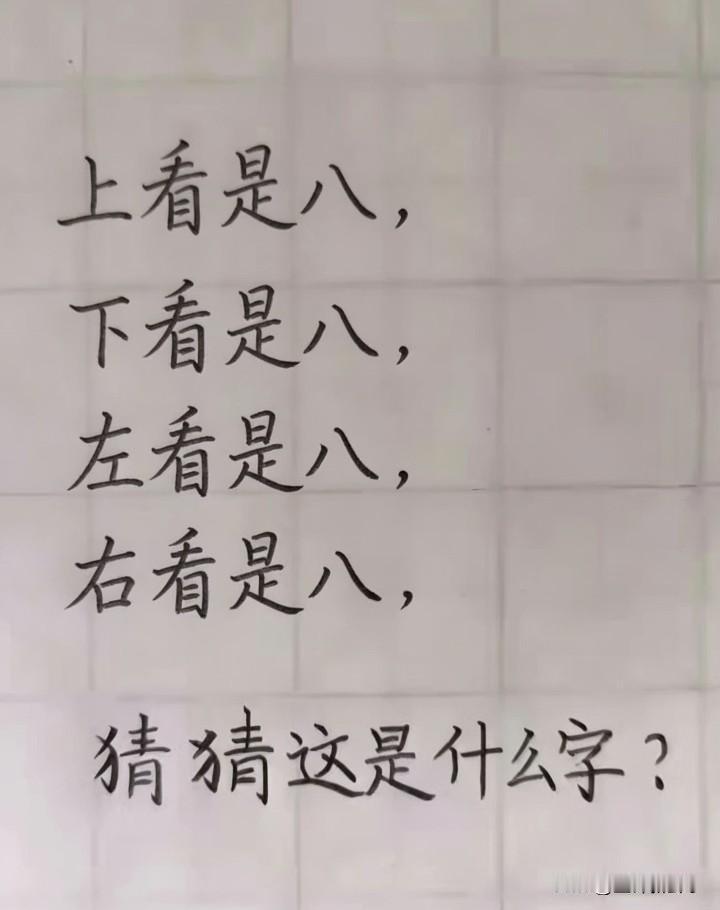 上看是八，
下看是八，
左看是八，
右看是八，
猜猜这是什么字？